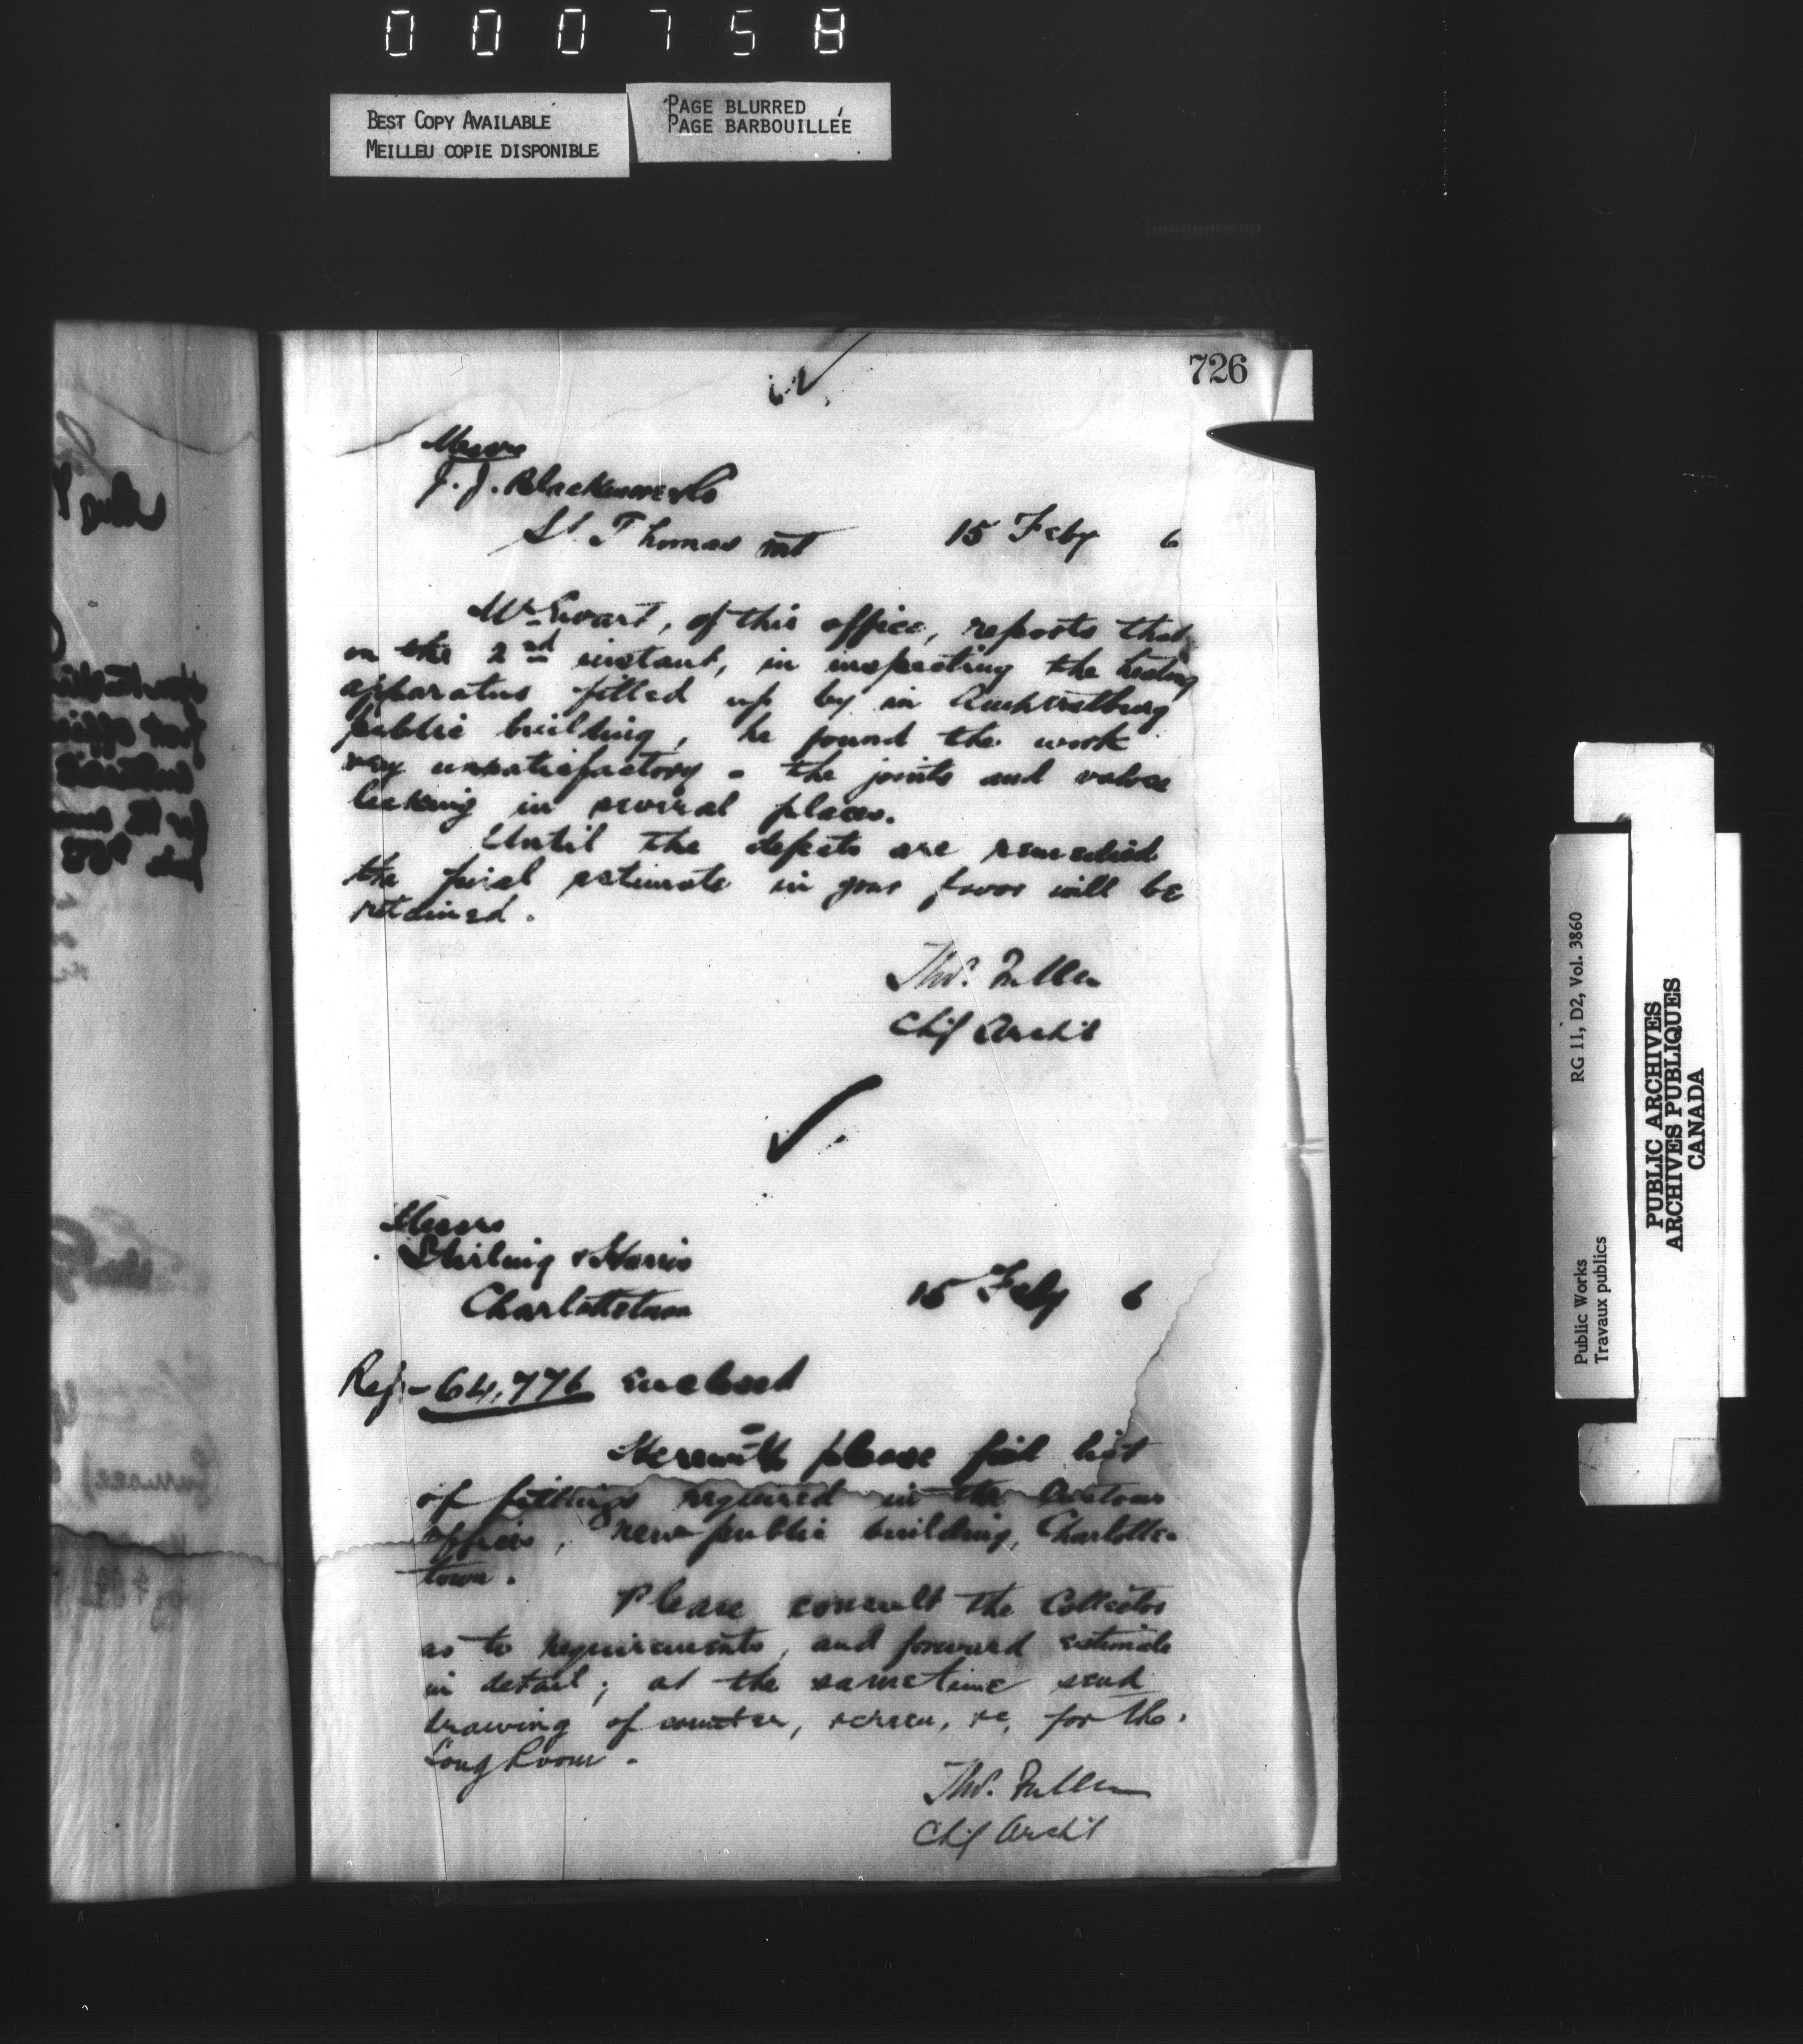 000758
BEST COPY AVAILABLE
MEILLEU COPIE DISPONIBLE
PAGE BLURRED
PAGE BARBOUILLÉE
726
Messrs
J. J. Blackmore & Co
St. Thomas Ont 15 Feby 6
Mr Ewart, of this office, reports that
on the 2nd instant, in inspecting the heating
apparatus fitted up by in Amherstburg
public building, he found the work
very unsatisfactory - the joints and valves
leaking in several places.
Until the defects are remedied
the final estimate in your favor will be
retained.
Thos. Fuller
Chf Archt
Messrs
Stirling & Harris
Charlottetown 15 Feby 6
Ref - 64,776 enclosed
Herewith please find list
of fittings required in the Customs
offices, new public building, Charlotte-
town.
Please consult the Collector
as to requirements, and forward estimate
in detail; at the sametime send
drawing of counter, screen, &c, for the
Long Room.
Thos. Fuller
Chf Archt
RG 11, D2, Vol. 3860
Public Works
Travaux publics
PUBLIC ARCHIVES
ARCHIVES PUBLIQUES
CANADA